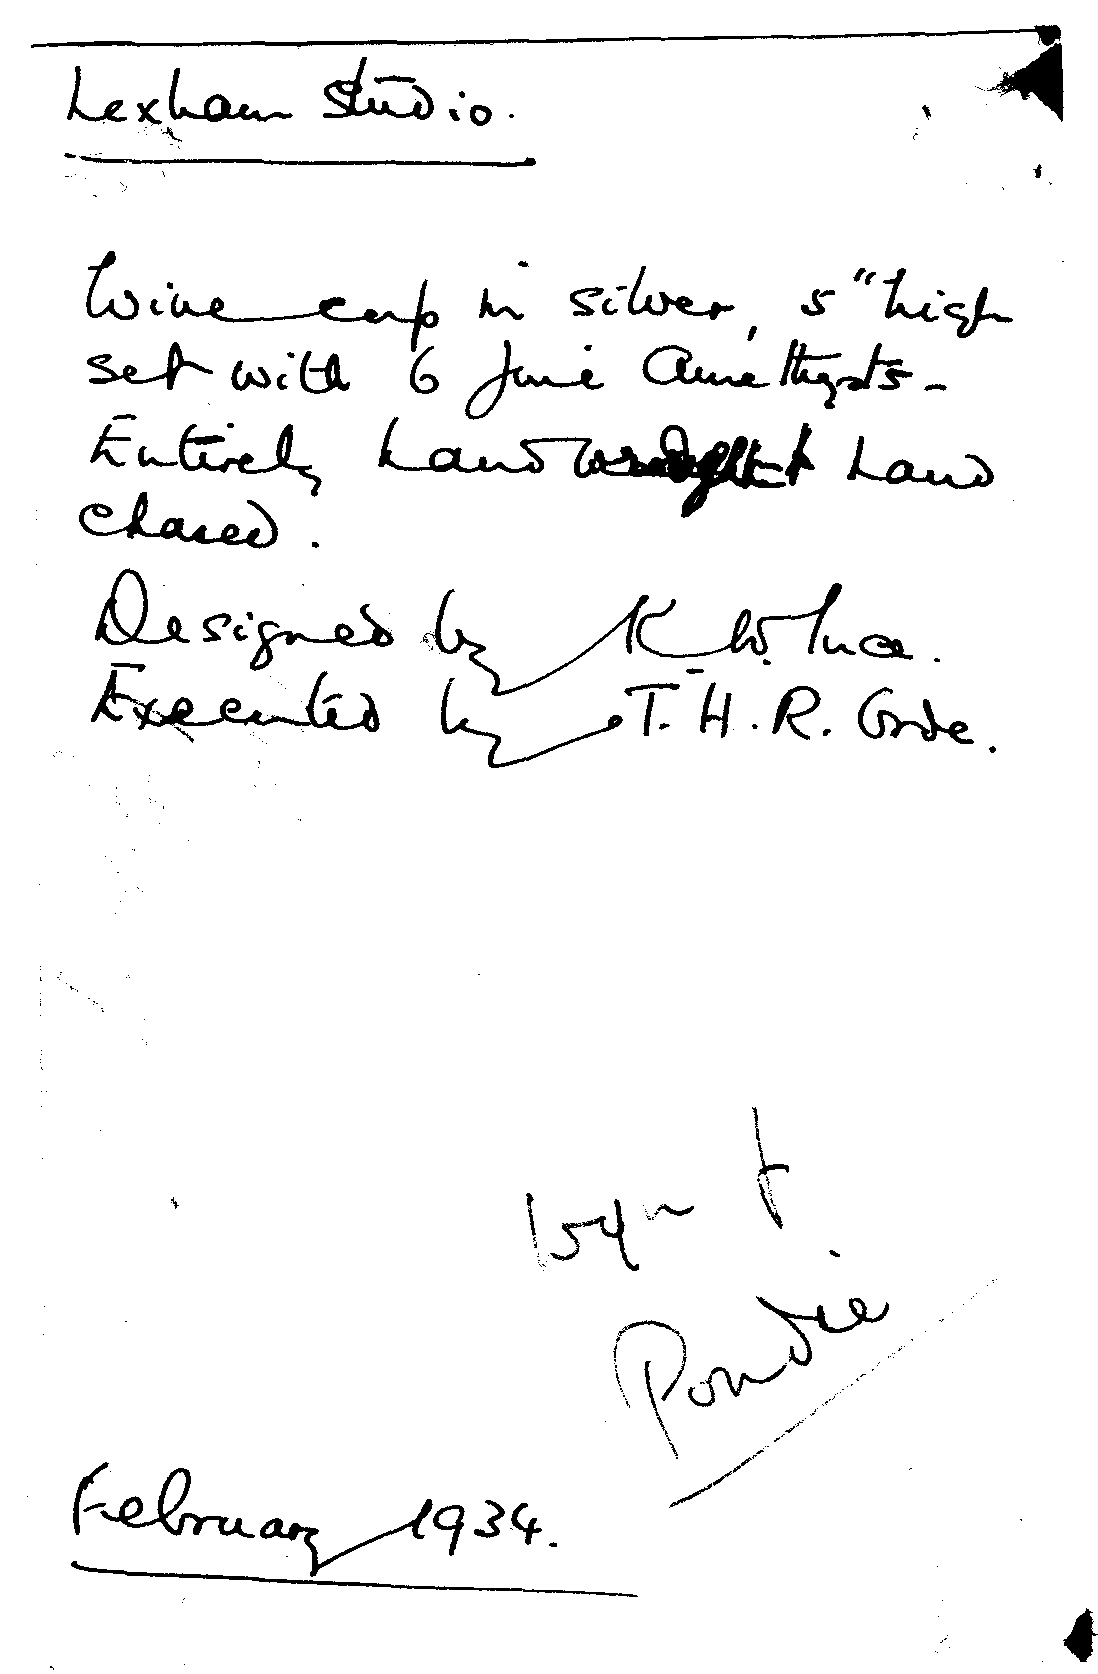 Lexham Studio.
Wine cup in silver, 5" high
set with 6 fine Amethysts -
Entirely hand wrought hand
chased.
Designed by K. W.
Executed by T. H. R.
February 1934.